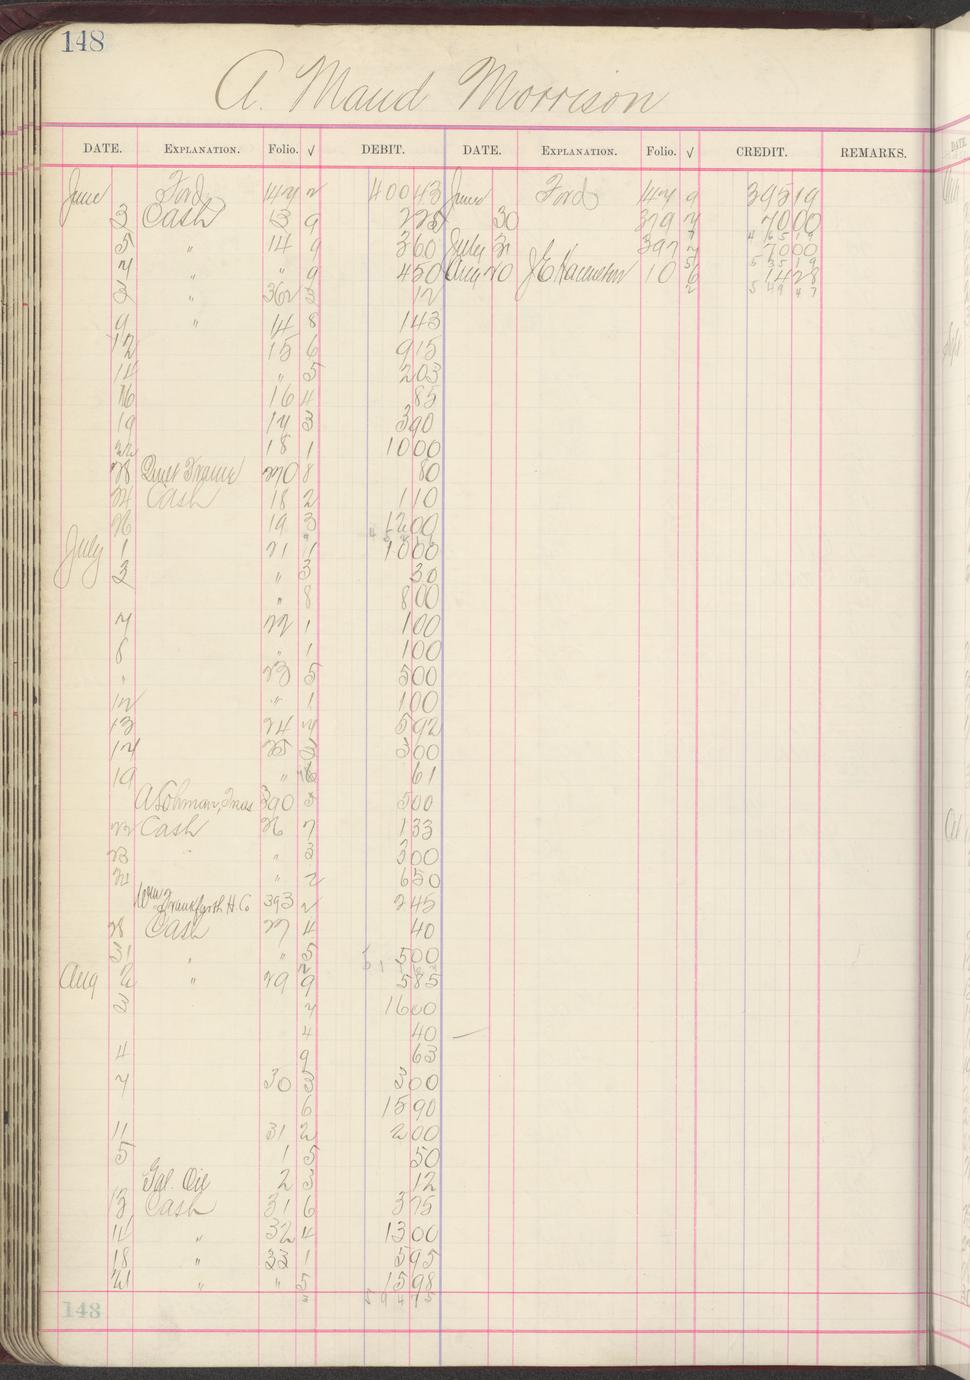 148
A. Maud Morrison
DATE. EXPLANATION. Folio. √ DEBIT. DATE. EXPLANATION. Folio. √ CREDIT. REMARKS.
June Ford 147 2 400 43 June Ford 147 9 395 19
3 Cash 13 9 2 25 30 379 7 70 00
5 " 14 9 3 60 July 31 397 7 70 00
7 " " 9 4 50 Aug 20 10 6 14 28
3 " 362 3 12
9 " 14 8 1 43
12 15 6 9 15
14 " 5 2 03
16 16 4 85
19 17 3 3 90
22 18 1 10 00
28 270 8 80
24 Cash 18 2 1 10
26 19 3 12 00
July 1 21 1 10 00
3 " 3 30
" 8 8 00
7 22 1 1 00
8 " 1 1 00
" 23 5 5 00
12 " 1 1 00
13 24 7 5 92
17 25 3 3 00
19 " 6 61
390 5 5 00
22 Cash 26 7 1 33
23 " 3 3 00
24 " 2 6 50
Wm Frankfurth H Co 393 2 2 45
28 Cash 27 4 40
31 " " 5 5 00
Aug 2 " 29 9 5 85
3 7 16 00
4 40
4 9 63
7 30 3 3 00
6 15 90
11 31 2 2 00
5 1 5 50
Gal. Oil 2 3 12
13 Cash 31 6 3 75
14 " 32 4 13 00
18 " 33 1 5 95
21 " " 5 15 98
3 594 75
148